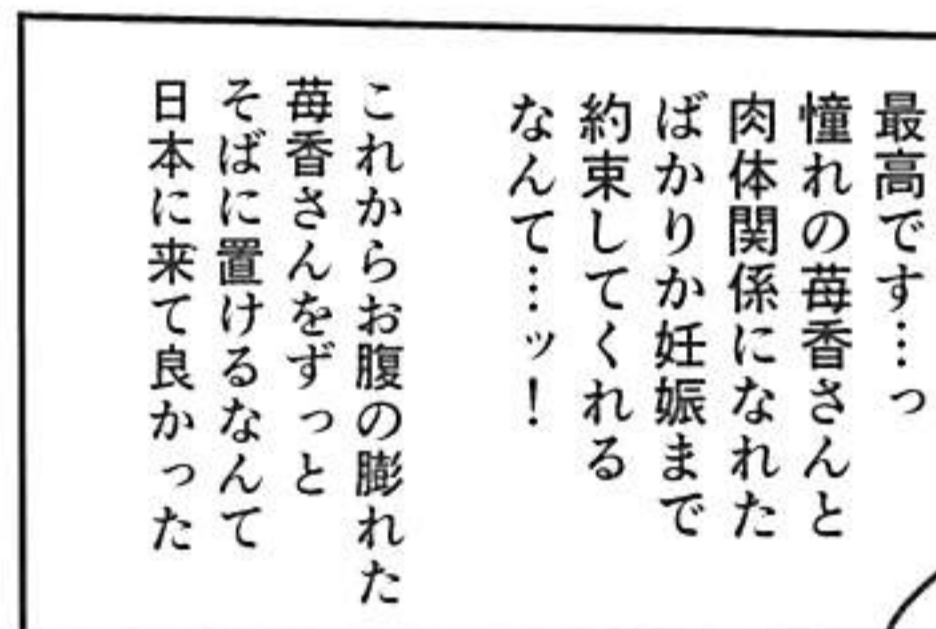 最高です…っ
憧れの苺香さんと
肉体関係になれた
ばかりか妊娠まで
約束してくれる
なんて…ッ！
これからお腹の膨れた
苺香さんをずっと
そばに置けるなんて
日本に来て良かった